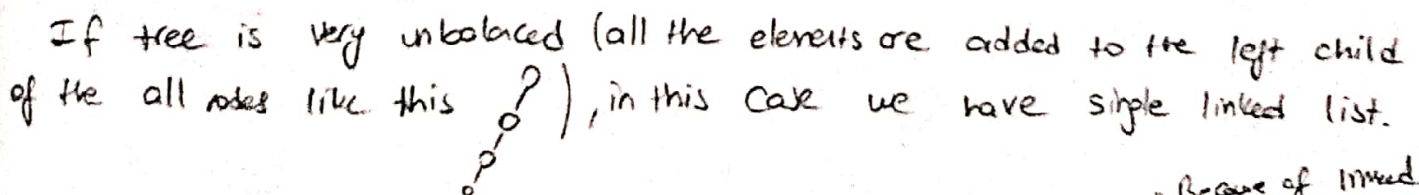 If tree is very unbolanced (all the elements are added to the left child
of the all nodes like this ), in this case we have single linked list.
Because of linked